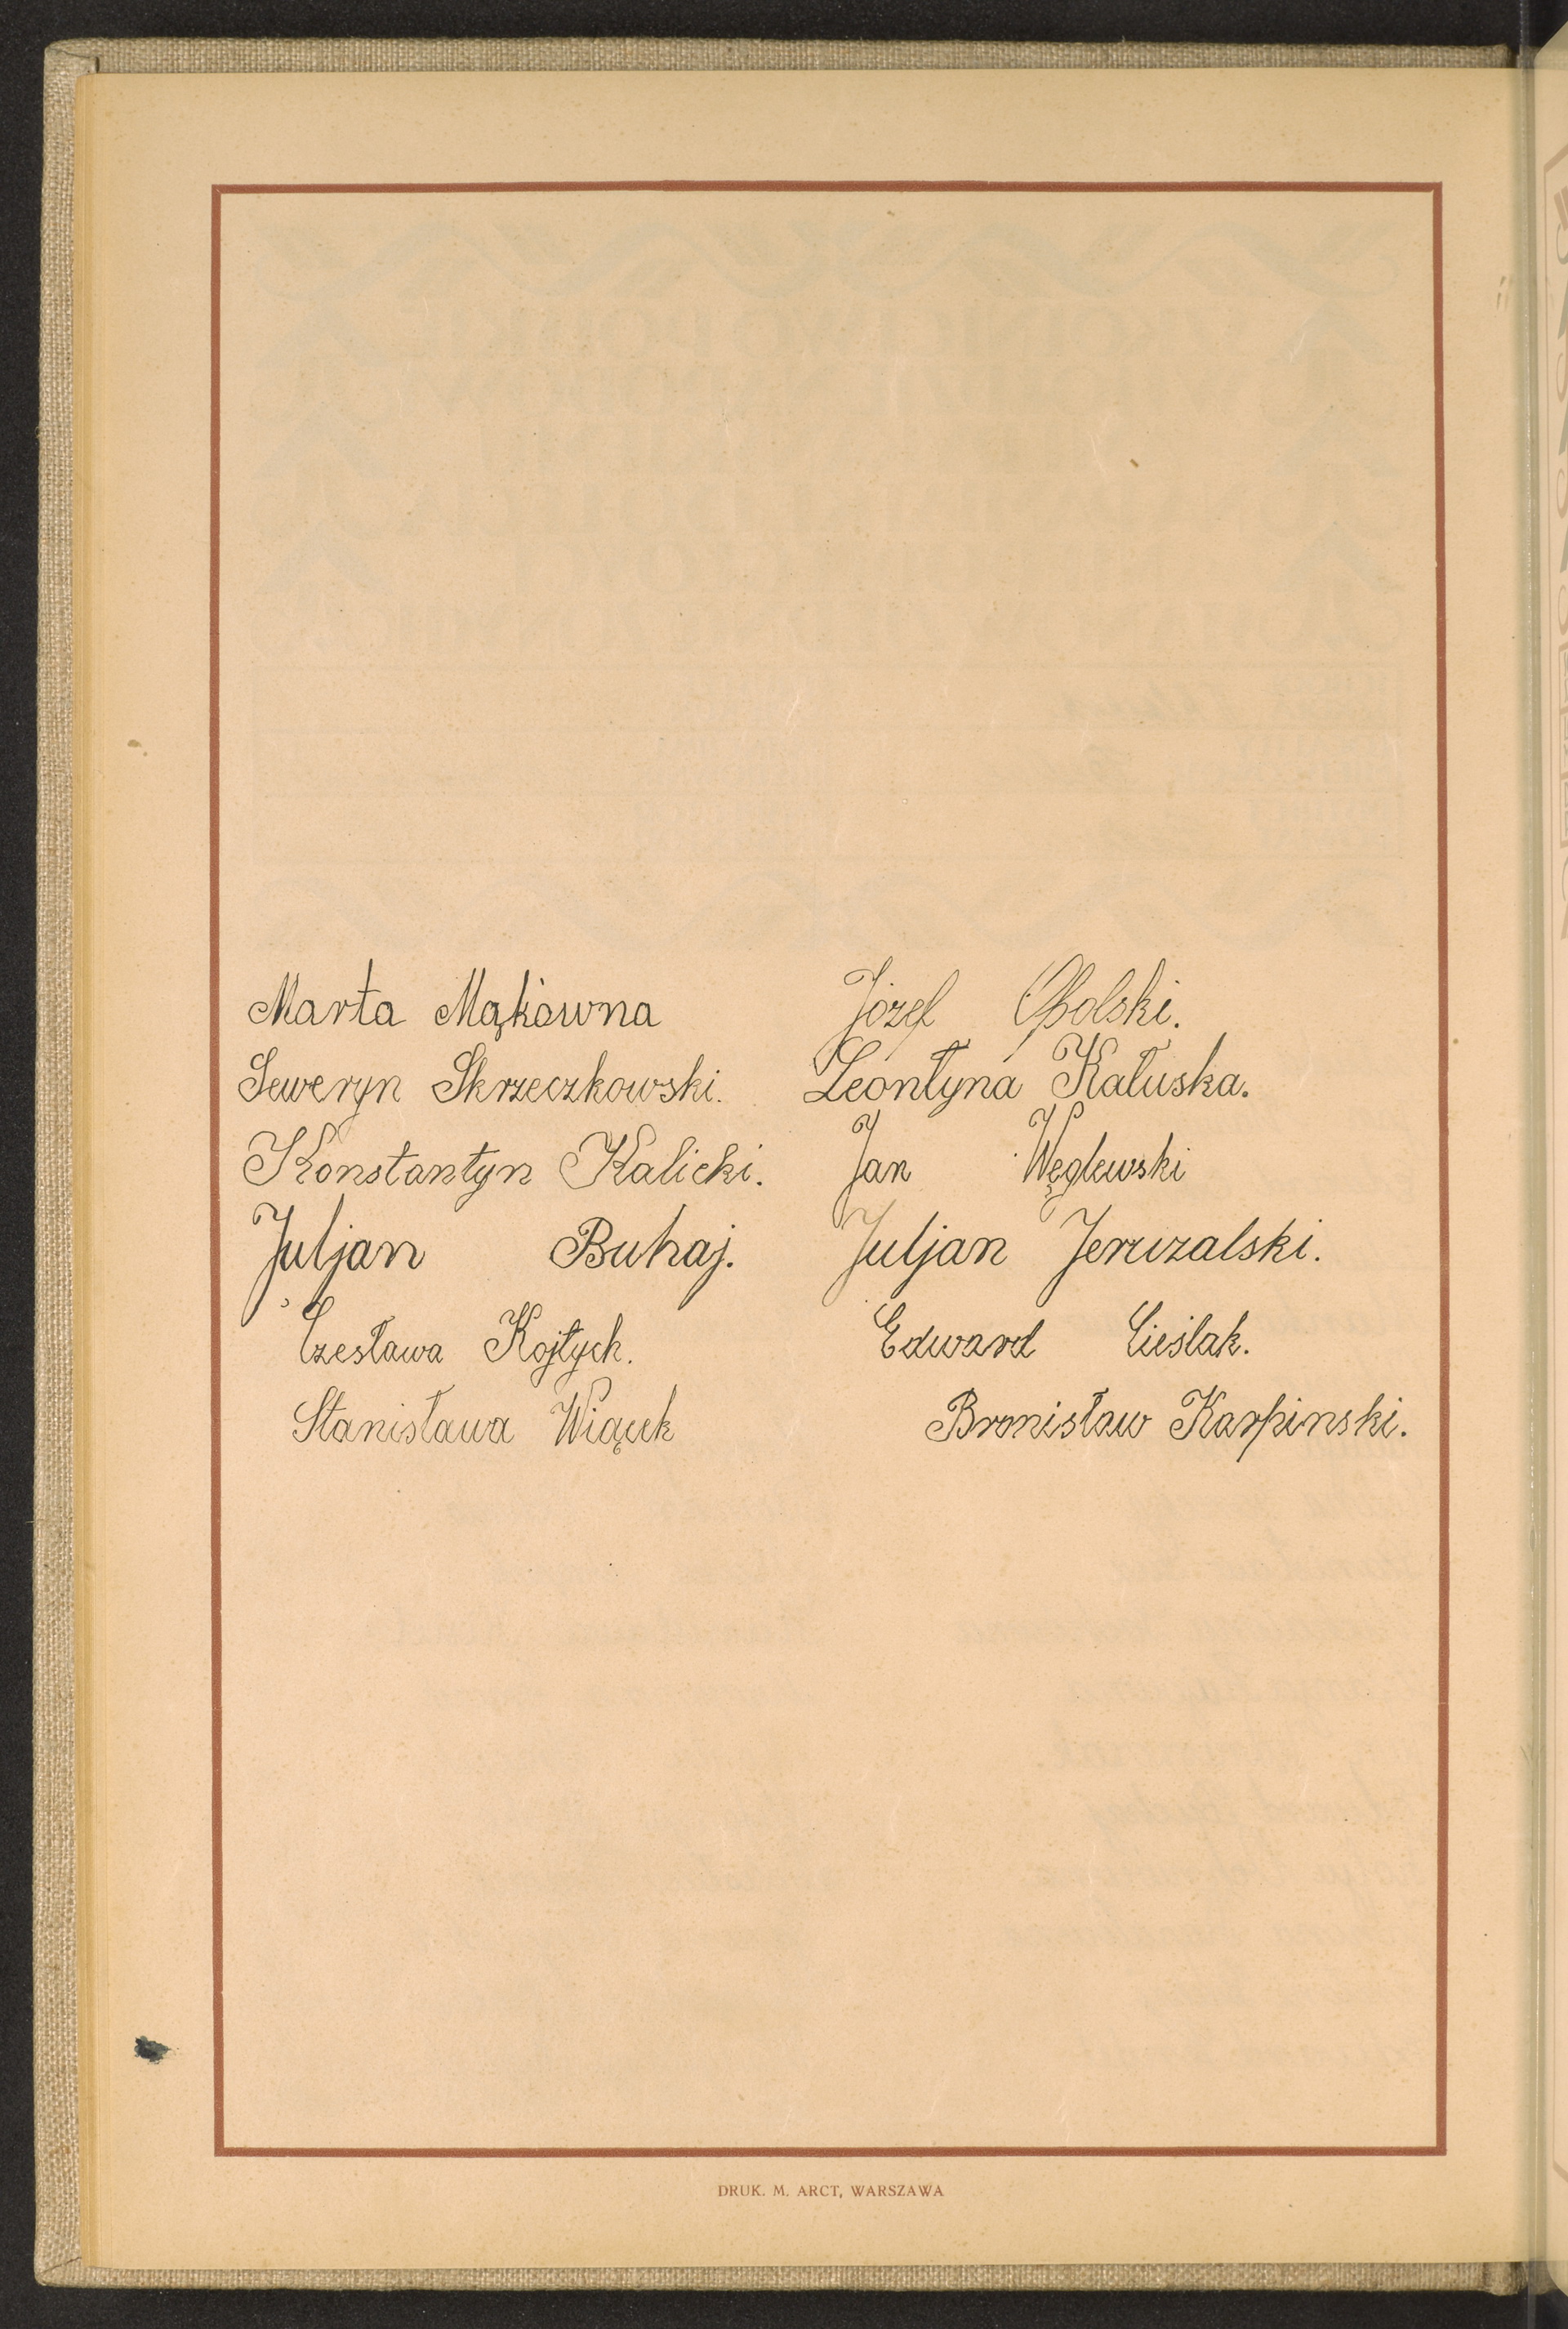 Marta Mąkówna
Józef Opolski.
Seweryn Skrzeczkowski.
Leontyna Kałuska.
Konstantyn Kalicki.
Jan Węglewski
Juljan Buhaj.
Juljan Jeruzalski.
Czesława Kojtych.
Edward Cieślak.
Stanisława Wiącek
Bronisław Karpinski.
DRUK. M. ARCT, WARSZAWA